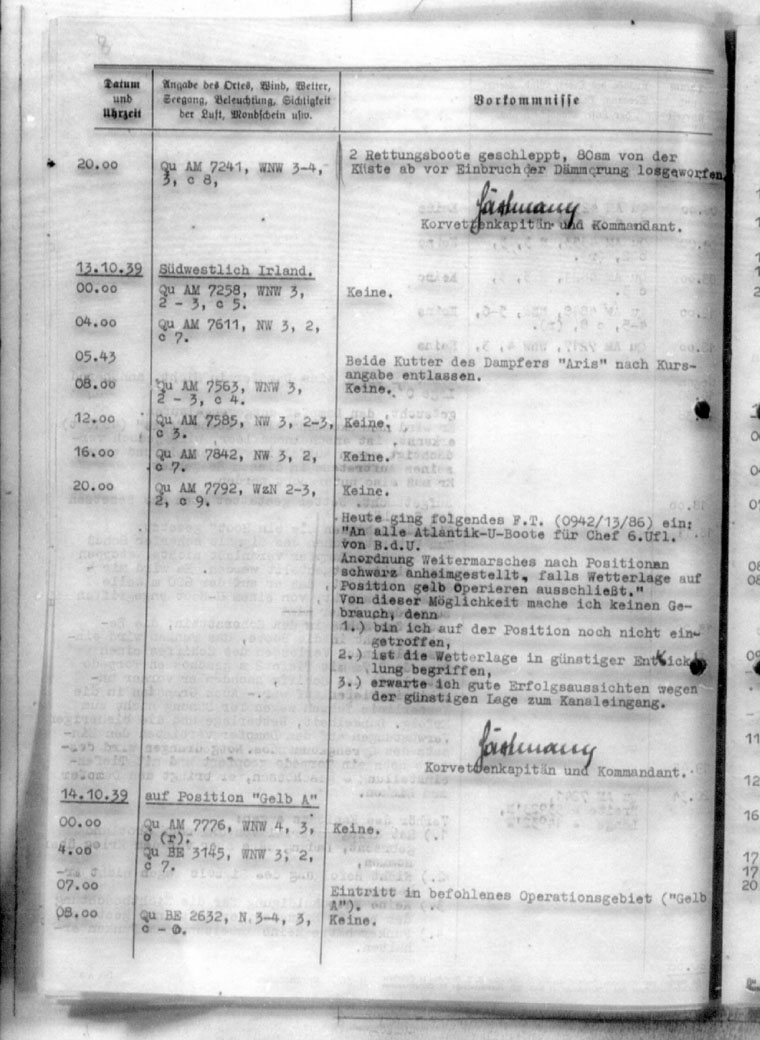 Datum
und
Uhrzeit
Angabe des Ortes, Wind, Wetter,
Seegang, Beleuchtung, Sichtigkeit
der Luft, Mondschein usw.
Vorkommnisse
20.00
Qu AM 7241, WNW 3-4,
3, c 8,
2 Rettungsboote geschleppt, 80sm von der
Küste ab vor Einbruch der Dämmerung losgeworfen.
Korvettenkapitän und Kommandant.
13.10.39
Südwestlich Irland.
00.00
Qu AM 7258, WNW 3,
2 - 3, c 5.
Keine.
04.00
Qu AM 7611, NW 3, 2,
c 7.
05.43
Beide Kutter des Dampfers "Aris" nach Kurs-
angabe entlassen.
08.00
Qu AM 7563, WNW 3,
2 - 3, c 4.
Keine.
12.00
Qu AM 7585, NW 3, 2-3,
c 3.
Keine.
16.00
Qu AM 7842, NW 3, 2,
c 7.
Keine.
20.00
Qu AM 7792, WzN 2-3,
2, c 9.
Keine.
Heute ging folgendes F.T. (0942/13/86) ein:
"An alle Atlantik-U-Boote für Chef 6.Ufl.
von B.d.U.
Anordnung Weitermarsches nach Positionen
schwarz anheimgestellt, falls Wetterlage auf
Position gelb Operieren ausschließt."
Von dieser Möglichkeit mache ich keinen Ge-
brauch, denn
1.) bin ich auf der Position noch nicht ein-
getroffen,
2.) ist die Wetterlage in günstiger Entwick-
lung begriffen,
3.) erwarte ich gute Erfolgsaussichten wegen
der günstigen Lage zum Kanaleingang.
Korvettenkapitän und Kommandant.
14.10.39
auf Position "Gelb A"
00.00
Qu AM 7776, WNW 4, 3,
o (r).
Keine.
4.00
Qu BE 3145, WNW 3, 2,
c 7.
07.00
Eintritt in befohlenes Operationsgebiet ("Gelb
A").
08.00
Qu BE 2632, N 3-4, 3,
c - 0.
Keine.